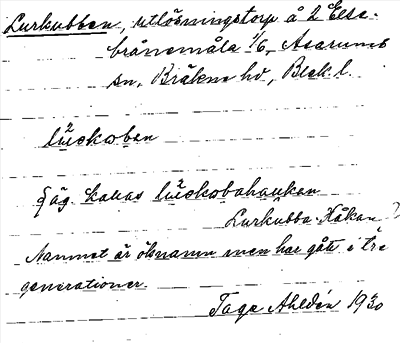 Lurkubben, utlösningstorp å 2 Elsa-
bränemåla 1/6, Asarums
sn, Bräkne hd, Blek. l.
Äg. kallas
Lurkubba-Håkan?
Namnet är öknamn men har gått i tre
generationer.
Tage Ahldén 1930